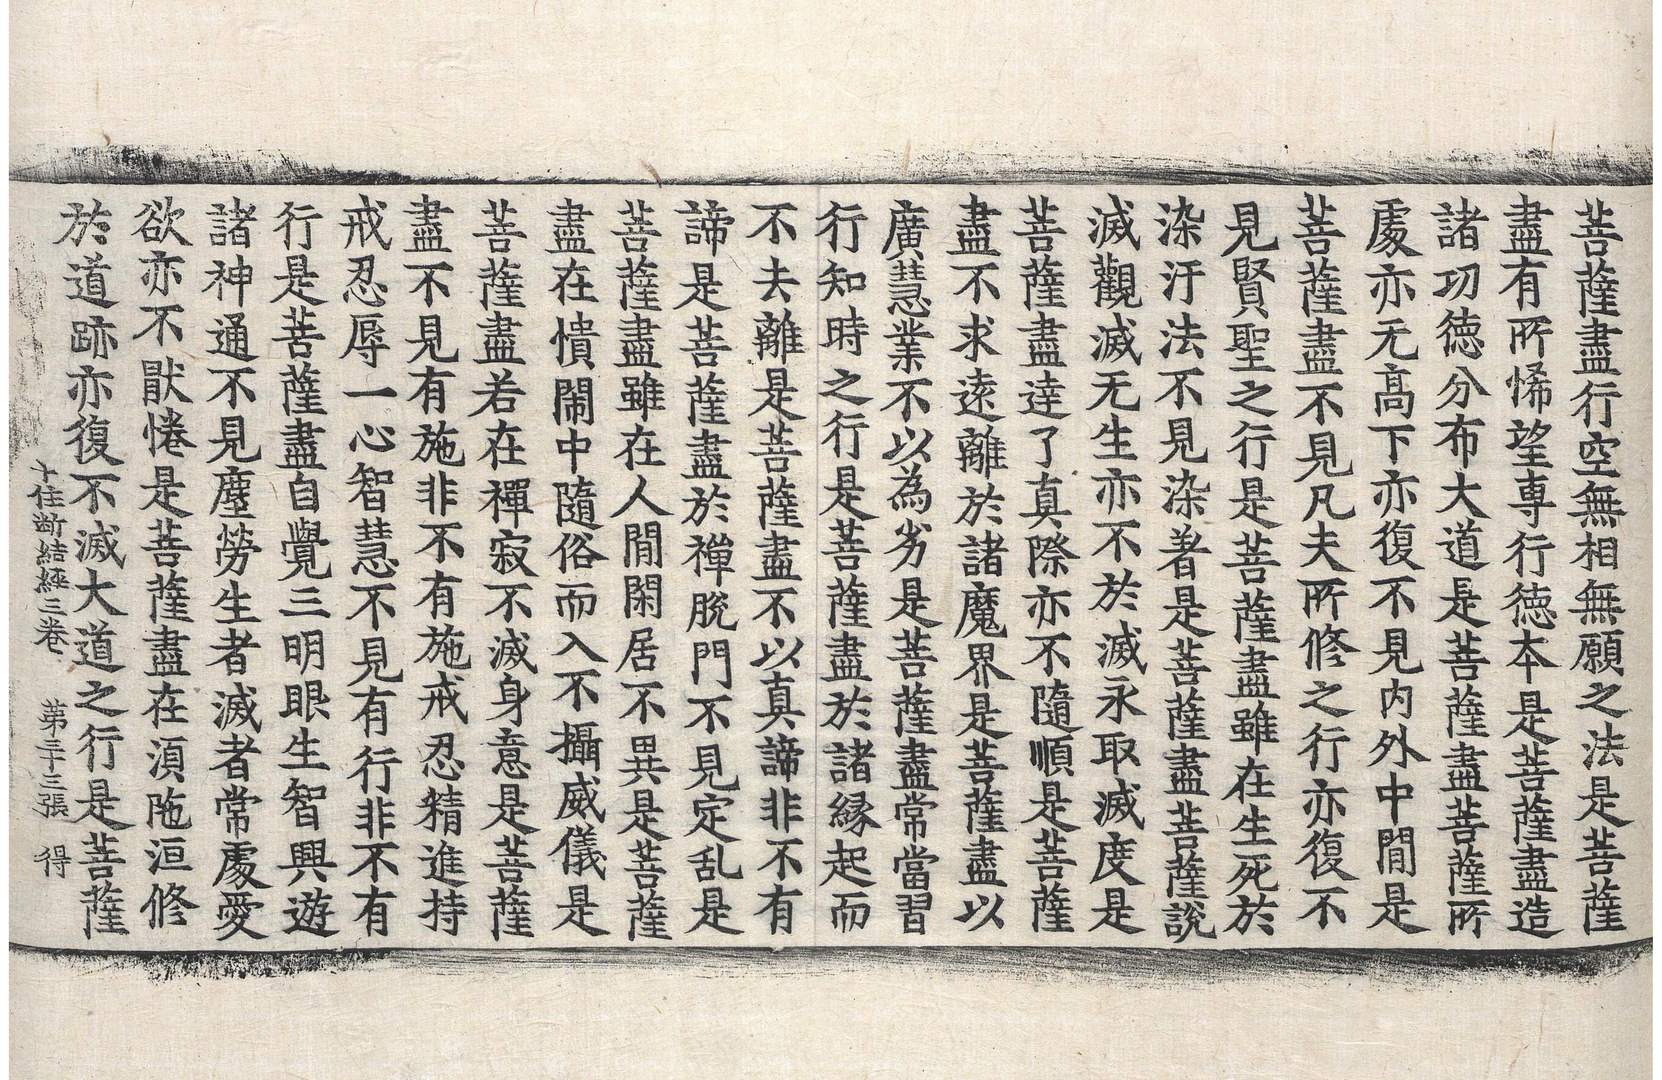 菩薩盡行空無相無願之法是菩薩
盡有所悕望専行徳本是菩薩盡造
諸功徳分布大道是菩薩盡菩薩所
處亦无髙下亦復不見内外中間是
菩薩盡不見凡夫所修之行亦復不
見賢聖之行是菩薩盡雖在生死於
染汙法不見染著是菩薩盡菩薩説
滅觀滅无生亦不於滅永取滅度是
菩薩盡達了真際亦不隨順是菩薩
盡不求遠離於諸魔界是菩薩盡以
廣慧業不以為劣是菩薩盡常當習
行知時之行是菩薩盡於諸縁起而
不去離是菩薩盡不以真諦非不有
諦是菩薩盡於禪脫門不見定乱是
菩薩盡雖在人間閑居不異是菩薩
盡在憒閙中隨俗而入不攝威儀是
菩薩盡若在禪寂不滅身意是菩薩
盡不見有施非不有施戒忍精進持
戒忍辱一心智慧不見有行非不有
行是菩薩盡自覺三明眼生智興遊
諸神通不見塵勞生者滅者常處愛
欲亦不猒惓是菩薩盡在湏陁洹修
於道跡亦復不滅大道之行是菩薩
十住断結経三卷 第三十三張 得